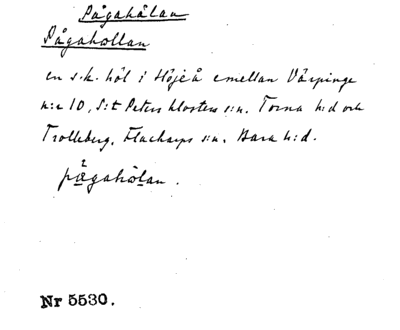 Pågahålan
Pågahollan
en s.k. hål i Höjeå emellan Värpinge
n:o 10, S:t Peters klosters s:n. Torna h:d och
Trolleberg, Flackarps s:n. Bara h:d.
pågahölan.
Nr 5530.